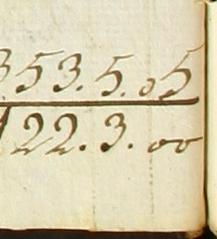 353.5.05
122.3.00